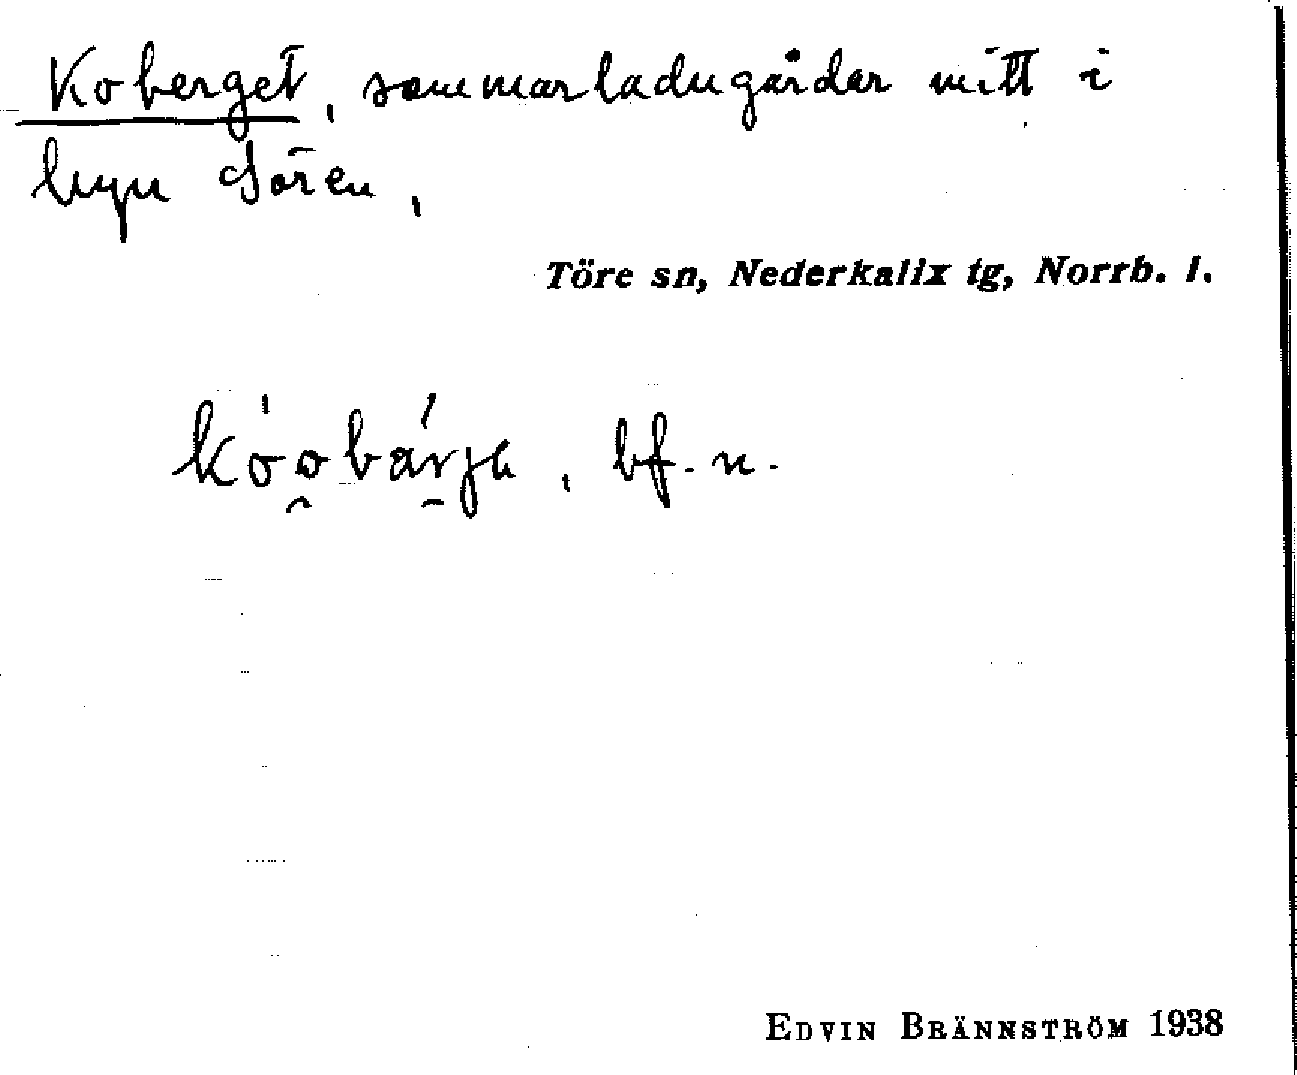 Koberget, sommarladugårdar mitt i
byn Sören,
Töre sn, Nederkalix tg, Norrb. l.
bf. n.
EDVIN BRÄNNSTRÖM 1938